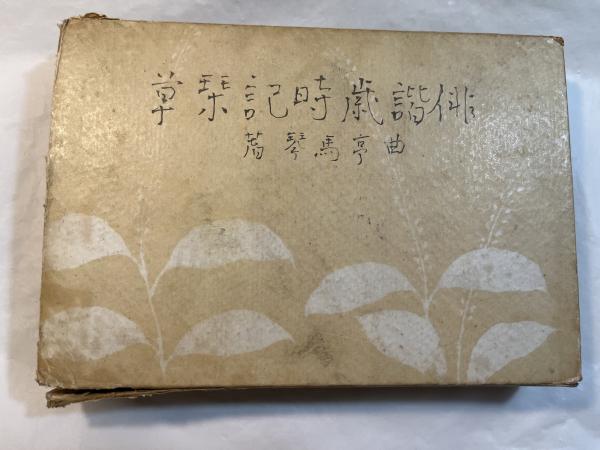 俳諧歳時記栞草
曲亭馬琴著